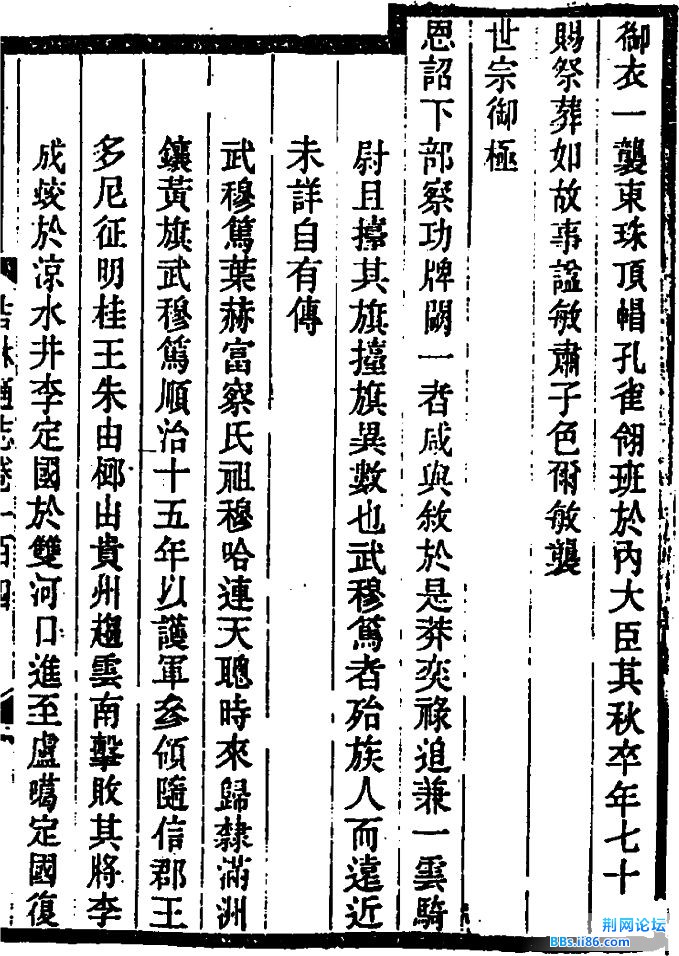 御衣一襲東珠頂帽孔雀翎班於內大臣其秋卒年七十
賜祭葬如故事謚敏肅子色爾敏襲
世宗御極
恩詔下部察功牌闕一者咸與敘於是莽奕祿追兼一雲騎
尉且擡其旗擡旗異數也武穆篤者殆族人而遠近
未詳自有傳
武穆篤葉赫富察氏祖穆哈連天聰時來歸隸滿洲
鑲黃旗武穆篤順治十五年以護軍參領隨信郡王
多尼征明桂王朱由榔由貴州趨雲南擊敗其將李
成蛟於涼水井李定國於雙河口進至盧噶定國復
吉林通志卷一百四
荆网论坛
BBs.ii86.com